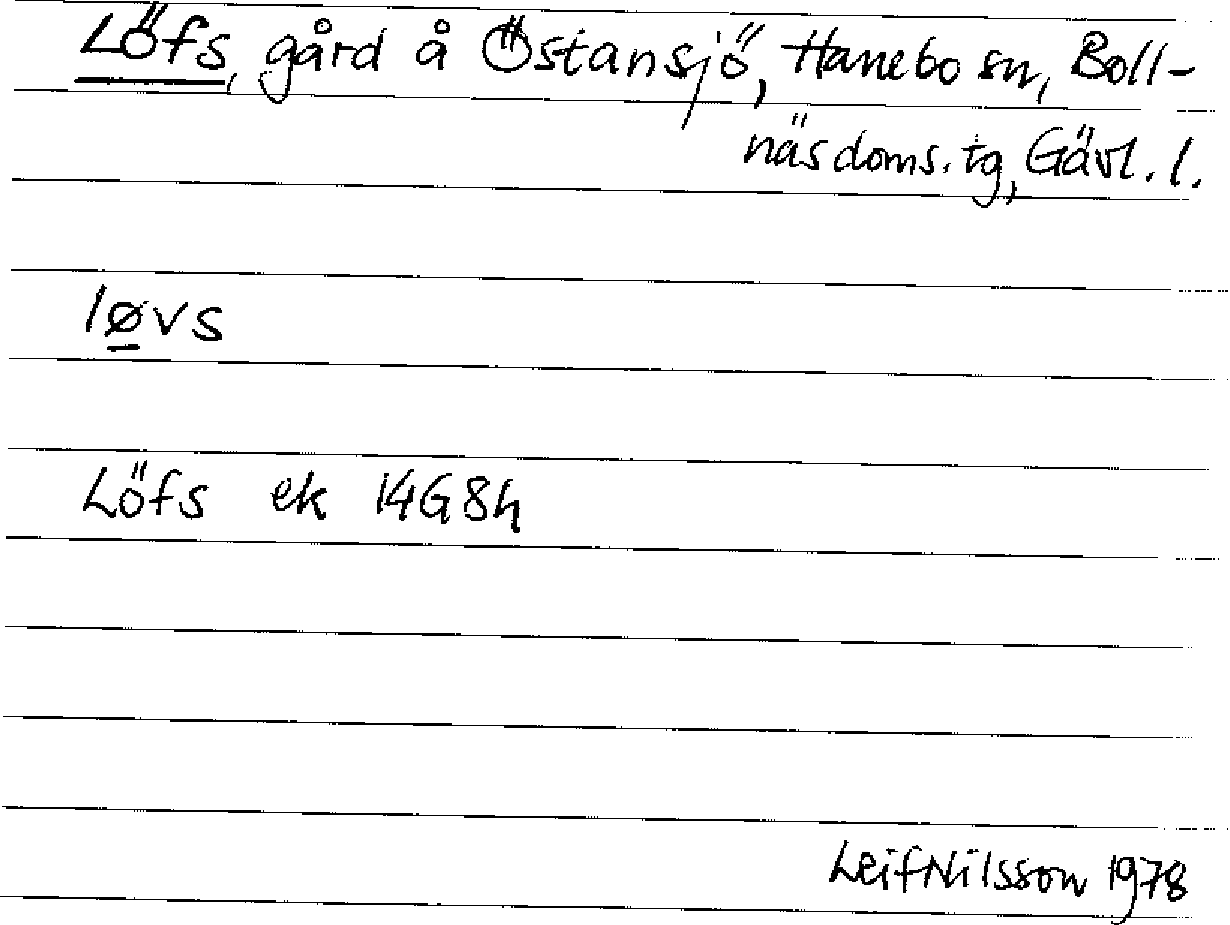 Löfs, gård å Östansjö, Hanebo sn, Boll-
näs doms. tg, Gävl. l.
løvs
Löfs ek 14G8h
Leif Nilsson 1978